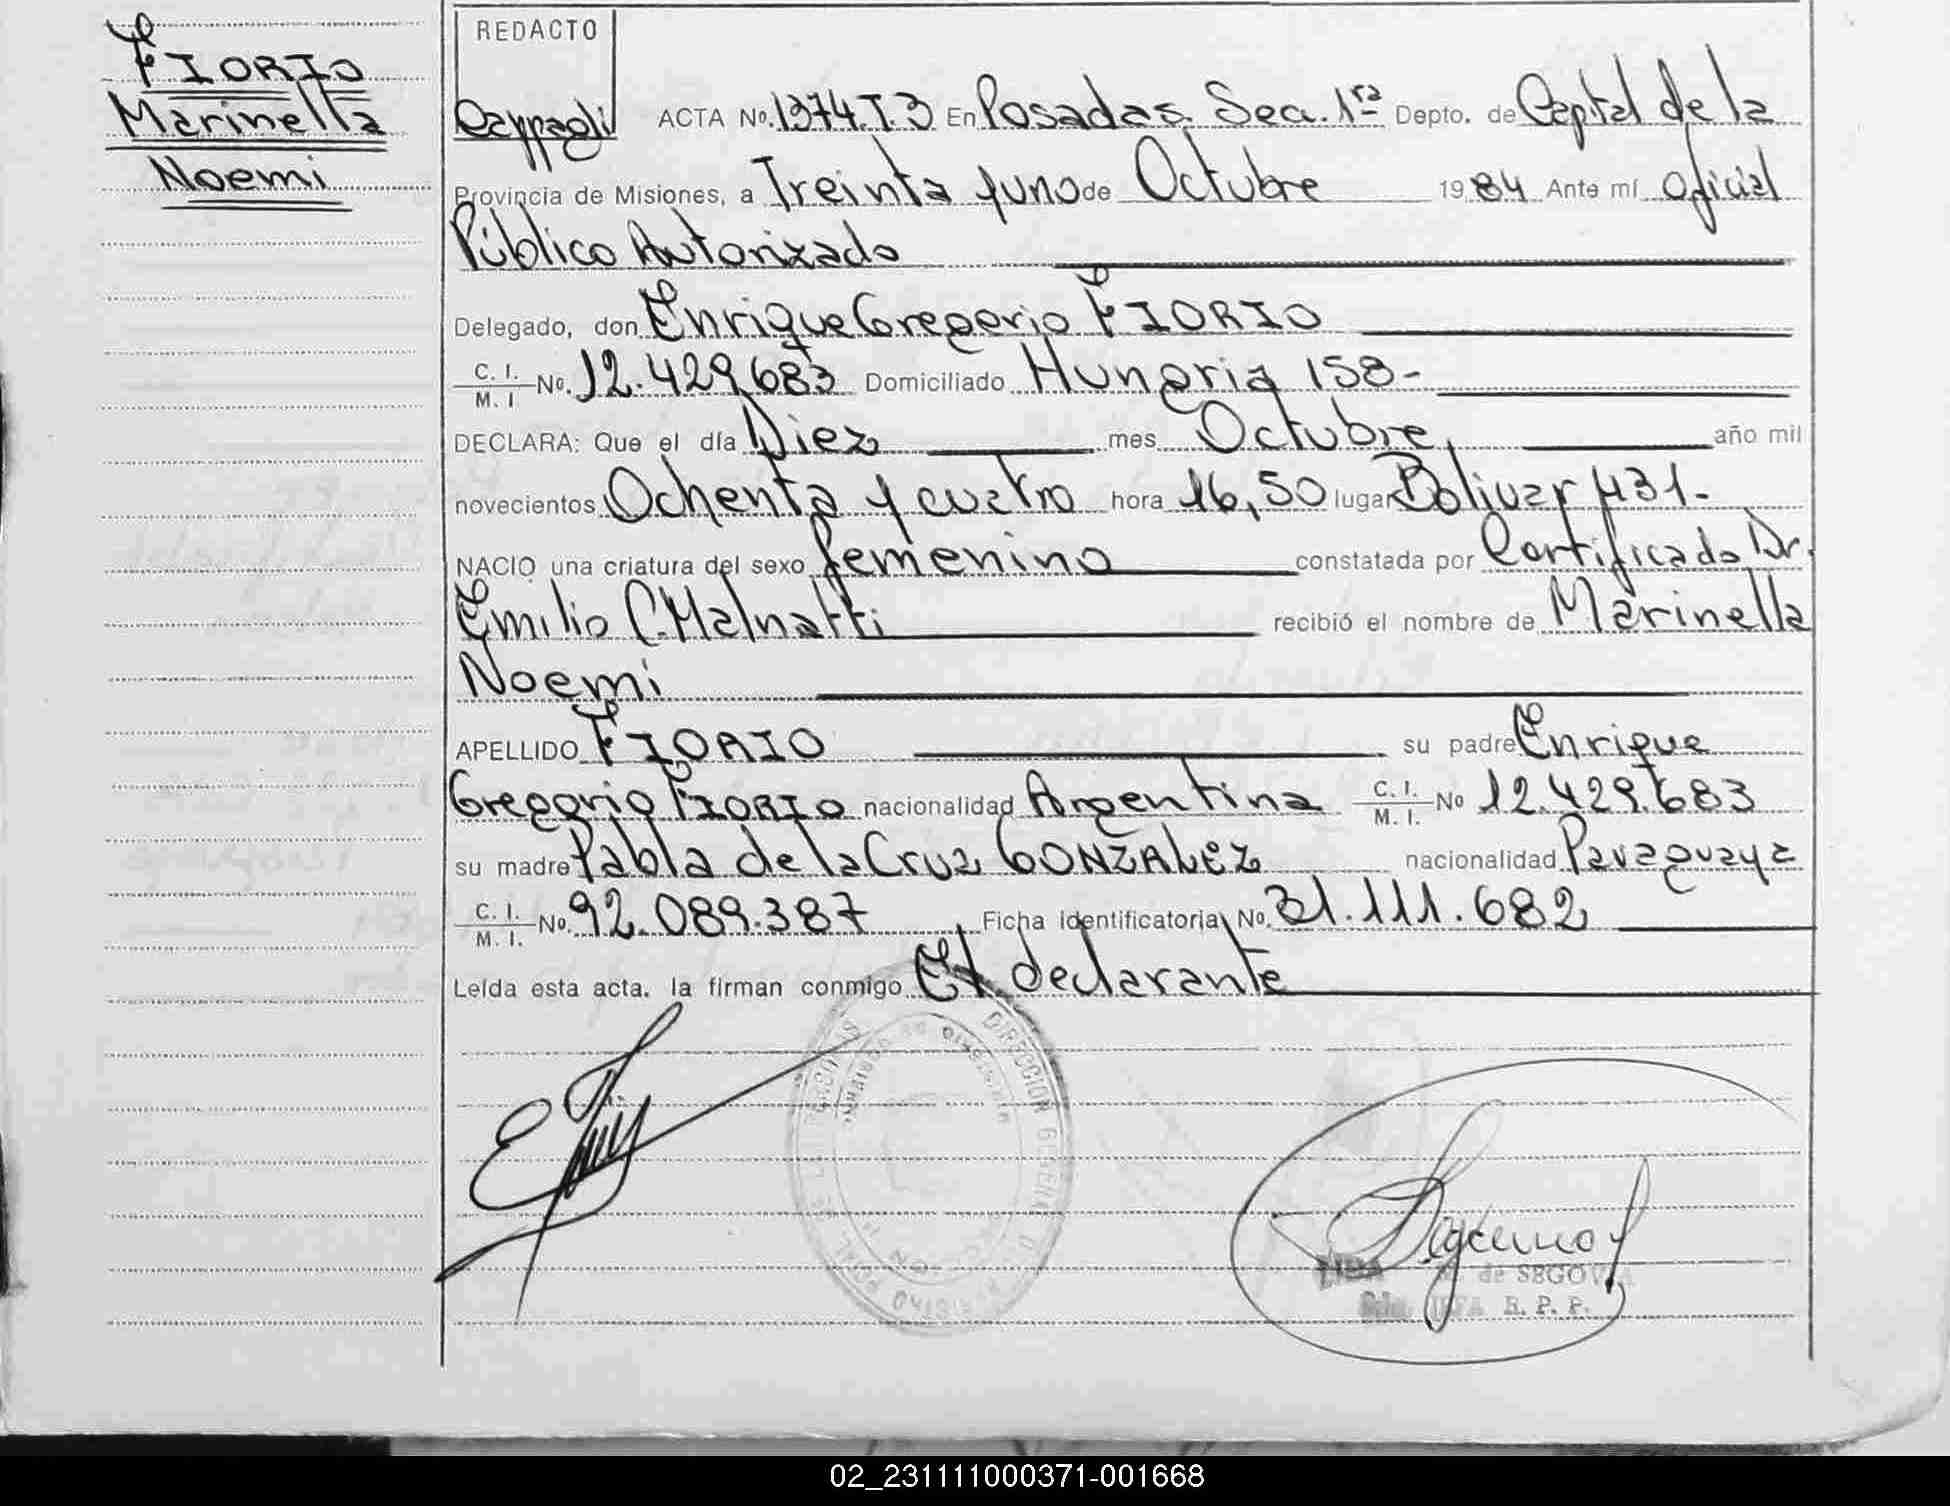 FIORIO
Marinella
Noemi
REDACTO
ACTA No. 1374.T.3 En Posadas. Sec. 1ra Depto. de Capital de la
Provincia de Misiones, a Treinta y uno de Octubre 1984 Ante mí oficial
Público Autorizado
Delegado, don Enrique Gregorio FIORIO
C. I.
M. I No. 12.429.683 Domiciliado Hungria 158-
DECLARA: Que el día Diez mes Octubre, año mil
novecientos Ochenta y cuatro hora 16,50 lugar Bolivar 431-
NACIO una criatura del sexo femenino constatada por Certificado Dr.
Emilio C. Malnatti recibió el nombre de Marinella
Noemi
APELLIDO FIORIO su padre Enrique
Gregorio FIORIO nacionalidad Argentina C. I. M. I. No 12.429.683
su madre Pabla de la Cruz GONZALEZ nacionalidad Paraguaya
C. I.
M. I. No. 92.089.387 Ficha identificatoria No. 31.111.682
Leída esta acta. la firman conmigo El declarante
DIRECCION GENERAL REGISTRO
de SEGOVIA
R. P. P.
02_231111000371-001668